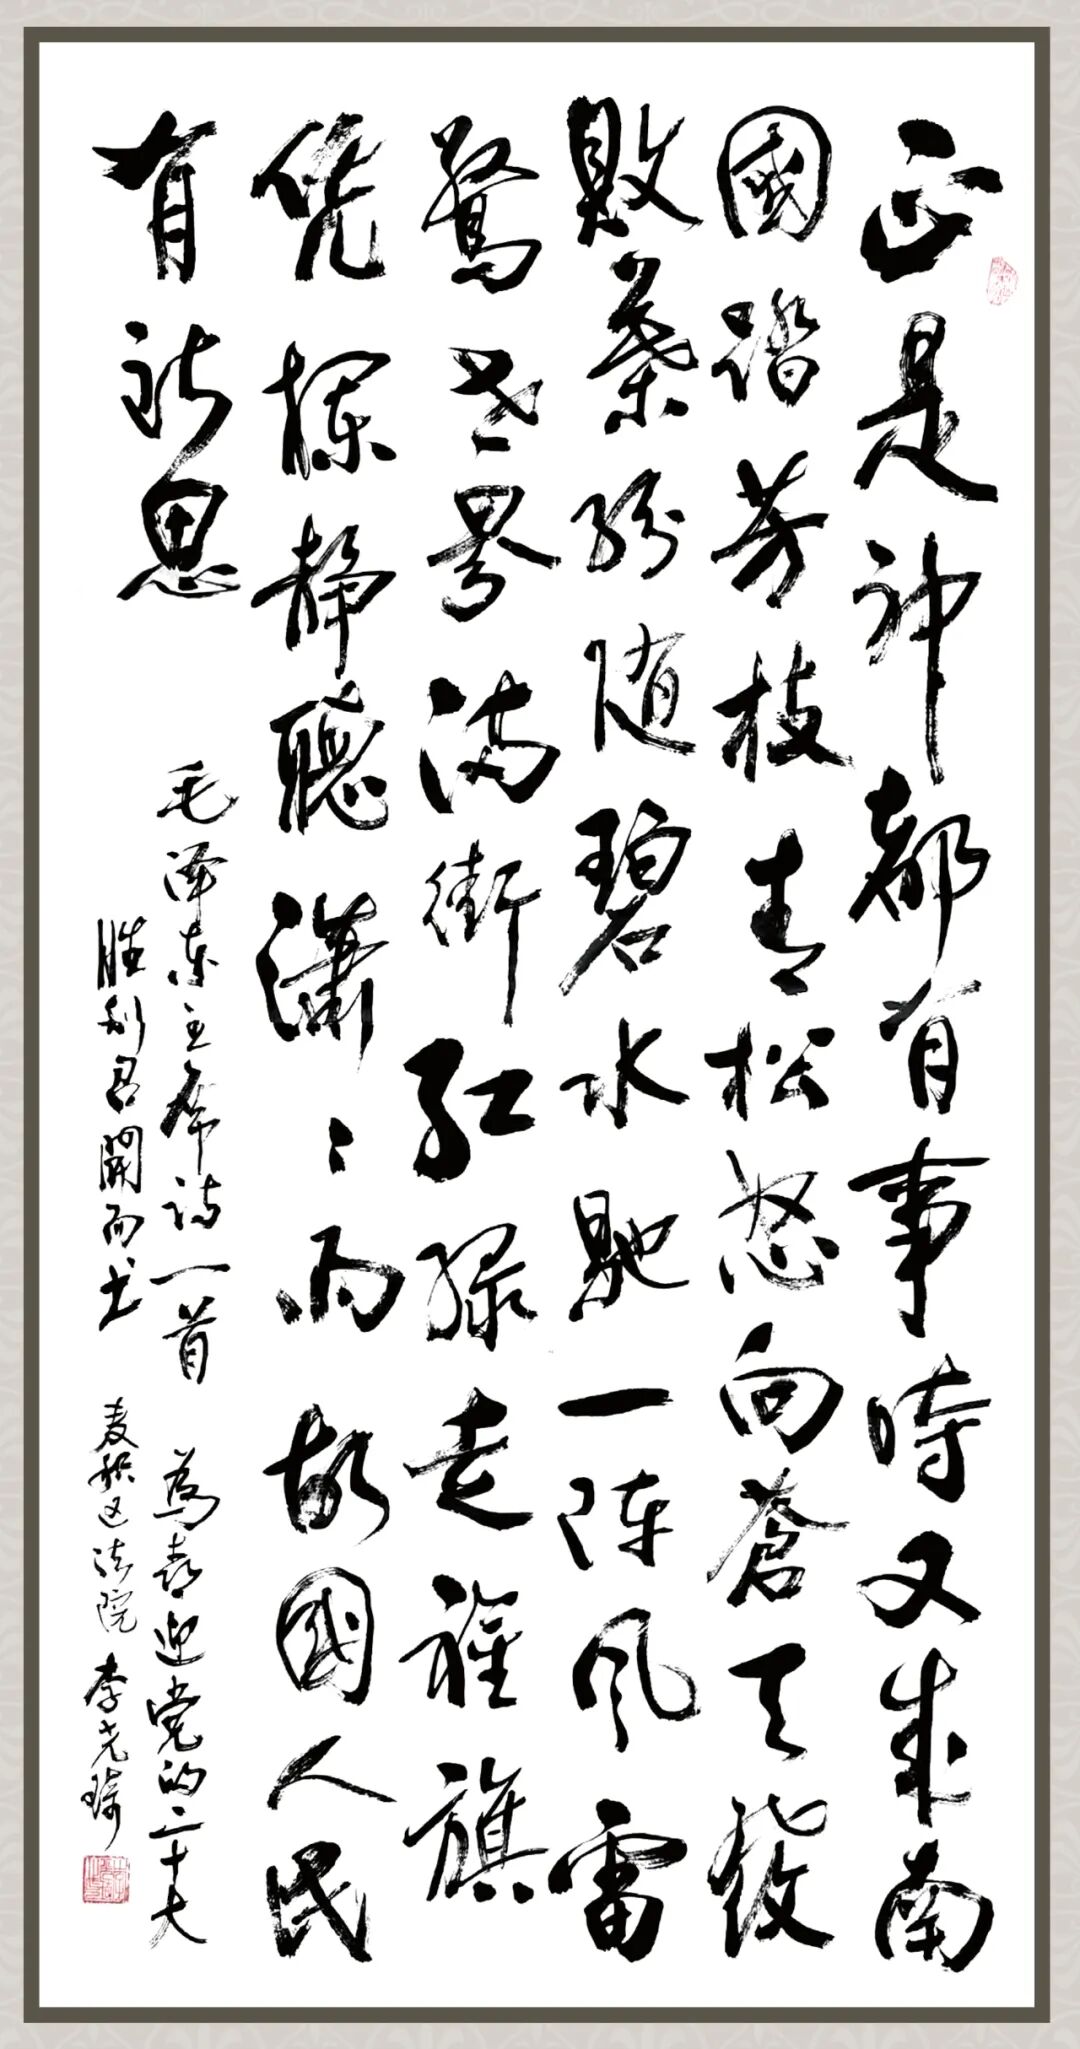 正是神都有事時又来南
國踏芳枝青松怒向蒼天發
敗葉纷随碧水馳一阵风雷
驚世界满街红绿走旌旗
凭栏静聽瀟〻雨故國人民
有所思
毛泽东主席诗一首 為喜迎党的二十大
胜利召開而书 麦积区法院 李尧琦